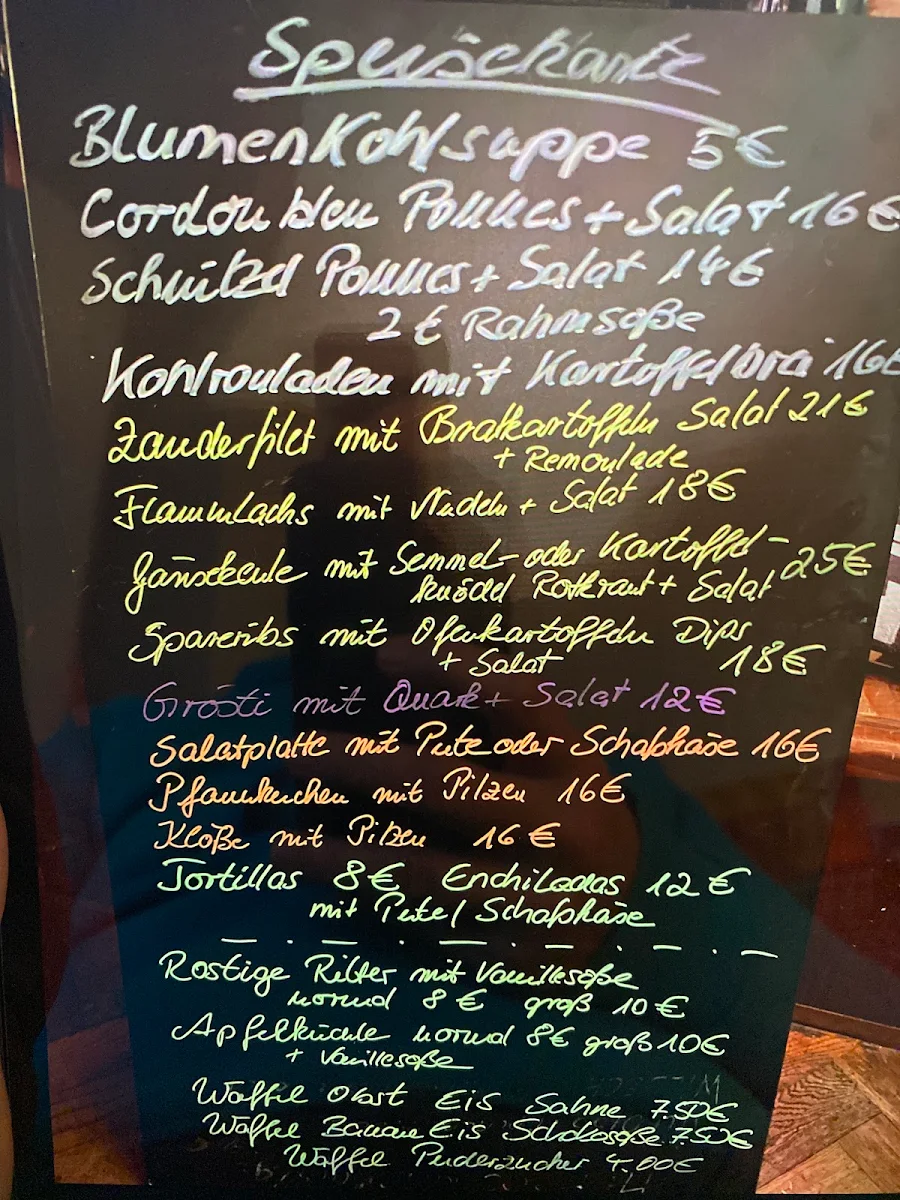 Speisekarte
Blumenkohlsuppe 5€
Cordou bleu Pommes + Salat 16€
Schnitzel Pommes + Salat 14€
2 € Rahmsoße
Kohlrouladen mit Kartoffelbrei 16€
Zanderfilet mit Bratkartoffeln Salat 21€
+ Remoulade
Flammlachs mit Nudeln + Salat 18€
Gänsekeule mit Semmel- oder Kartoffel- 25€
knödel Rotkraut + Salat
Spareribs mit Ofenkartoffeln Dips
+ Salat 18€
Grösti mit Quark + Salat 12€
Salatplatte mit Pute oder Schafskäse 16€
Pfannkuchen mit Pilzen 16€
Klöße mit Pilzen 16€
Tortillas 8€ Enchiladas 12€
mit Pute / Schafskäse
Rostige Ritter mit Vanillesoße
normal 8€ groß 10€
Apfelküchle normal 8€ groß 10€
+ Vanillesoße
Waffel Obst Eis Sahne 7.50€
Waffel Banane Eis Schokosoße 7.50€
Waffel Puderzucker 4.00€